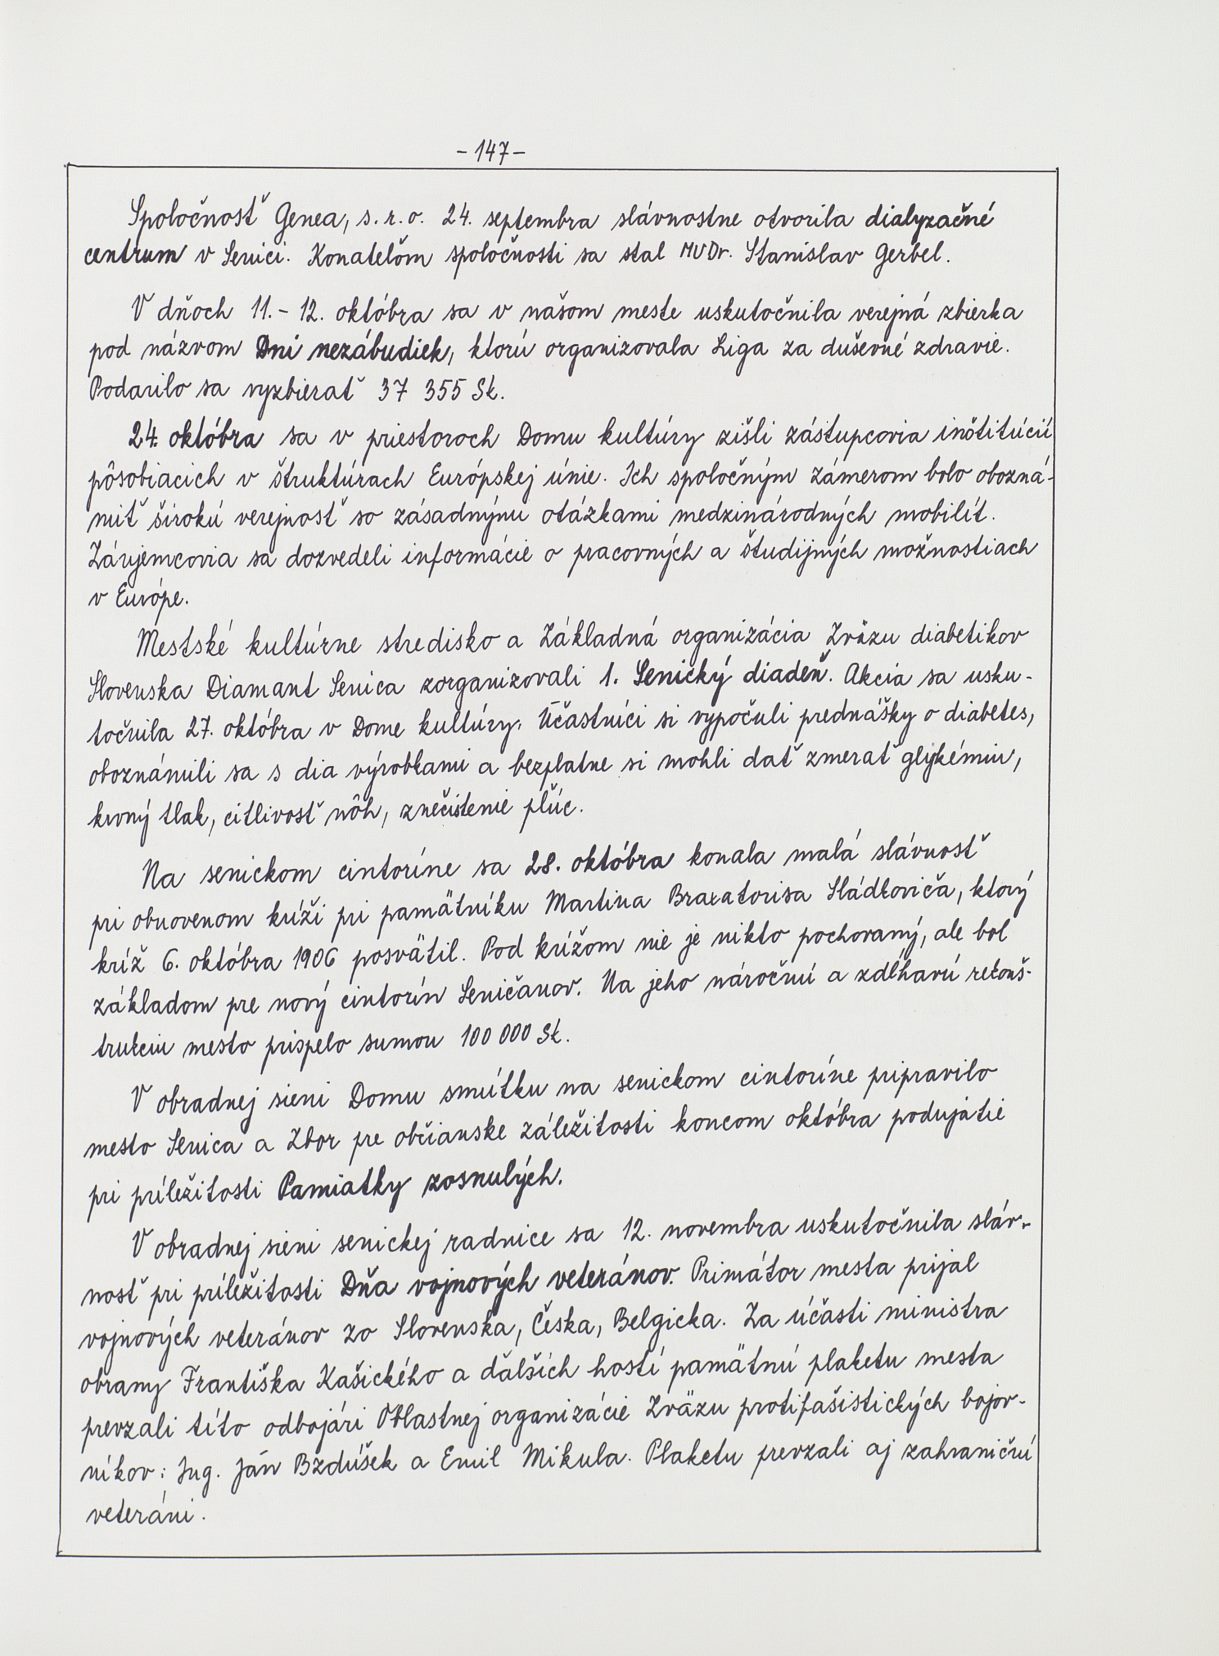 - 147 -
Spoločnosť Genea, s. r. o. 24. septembra slávnostne otvorila dialyzačné
centrum v Senici. Konateľom spoločnosti sa stal MUDr. Stanislav Gerbel.
V dňoch 11. - 12. októbra sa v našom meste uskutočnila verejná zbierka
pod názvom Dni nezábudiek, ktorú organizovala Liga za duševné zdravie.
Podarilo sa vyzbierať 37 355 Sk.
24. októbra sa v priestoroch Domu kultúry zišli zástupcovia inštitúcií
pôsobiacich v štruktúrach Európskej únie. Ich spoločným zámerom bolo obozná-
miť širokú verejnosť so zásadnými otázkami medzinárodných mobilít.
Záujemcovia sa dozvedeli informácie o pracovných a študijných možnostiach
v Európe.
Mestské kultúrne stredisko a Základná organizácia Zväzu diabetikov
Slovenska Diamant Senica zorganizovali 1. Senický diadeň. Akcia sa usku-
točnila 27. októbra v Dome kultúry. Účastníci si vypočuli prednášky o diabetes,
oboznámili sa s dia výrobkami a bezplatne si mohli dať zmerať glykémiu,
krvný tlak, citlivosť nôh, znečistenie pľúc.
Na senickom cintoríne sa 28. októbra konala malá slávnosť
pri obnovenom kríži pri pamätníku Martina Braxatorisa Sládkoviča, ktorý
kríž 6. októbra 1906 posvätil. Pod krížom nie je nikto pochovaný, ale bol
základom pre nový cintorín Seničanov. Na jeho náročnú a zdĺhavú rekonš-
trukciu mesto prispelo sumou 100 000 Sk.
V obradnej sieni Domu smútku na senickom cintoríne pripravilo
mesto Senica a Zbor pre občianske záležitosti koncom októbra podujatie
pri príležitosti Pamiatky zosnulých.
V obradnej sieni senickej radnice sa 12. novembra uskutočnila sláv-
nosť pri príležitosti Dňa vojnových veteránov. Primátor mesta prijal
vojnových veteránov zo Slovenska, Česka, Belgicka. Za účasti ministra
obrany Františka Kašického a ďalších hostí pamätnú plaketu mesta
prevzali títo odbojári Oblastnej organizácie Zväzu protifašistických bojov-
níkov: Ing. Ján Bzdúšek a Emil Mikula. Plaketu prevzali aj zahraniční
veteráni.